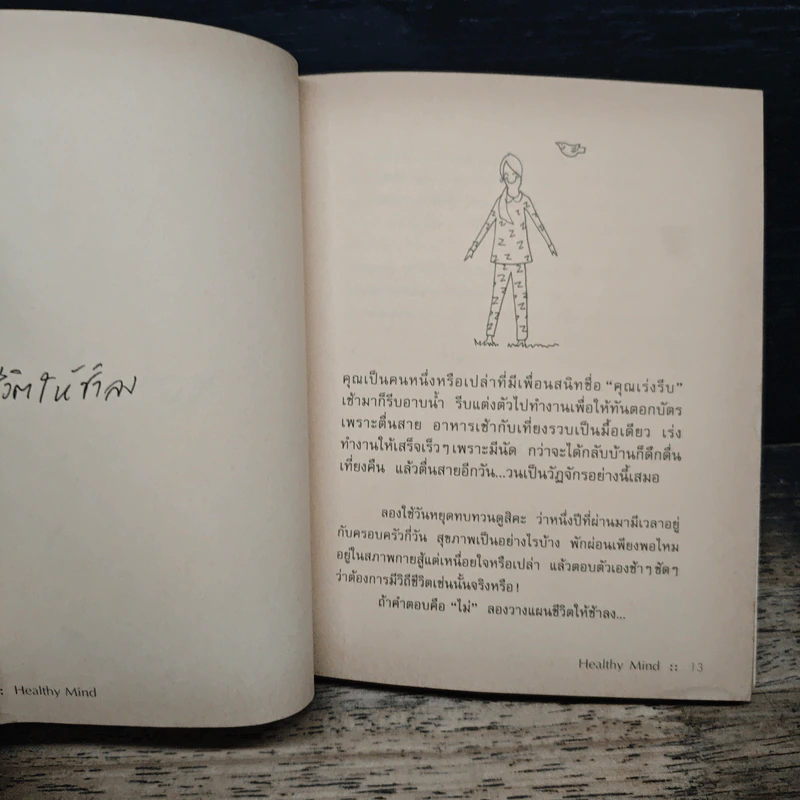 ชีวิตให้ช้าลง
:: Healthy Mind
คุณเป็นคนหนึ่งหรือเปล่าที่มีเพื่อนสนิทชื่อ “คุณเร่งรีบ”
เช้ามาก็รีบอาบน้ำ รีบแต่งตัวไปทำงานเพื่อให้ทันตอกบัตร
เพราะตื่นสาย อาหารเช้ากับเที่ยงรวบเป็นมื้อเดียว เร่ง
ทำงานให้เสร็จเร็วๆ เพราะมีนัด กว่าจะได้กลับบ้านก็ดึกดื่น
เที่ยงคืน แล้วตื่นสายอีกวัน...วนเป็นวัฏจักรอย่างนี้เสมอ
ลองใช้วันหยุดทบทวนดูสิคะ ว่าหนึ่งปีที่ผ่านมามีเวลาอยู่
กับครอบครัวกี่วัน สุขภาพเป็นอย่างไรบ้าง พักผ่อนเพียงพอไหม
อยู่ในสภาพกายสู้แต่เหนื่อยใจหรือเปล่า แล้วตอบตัวเองช้าๆ ชัดๆ
ว่าต้องการมีวิถีชีวิตเช่นนั้นจริงหรือ!
ถ้าคำตอบคือ “ไม่” ลองวางแผนชีวิตให้ช้าลง...
Healthy Mind :: 13